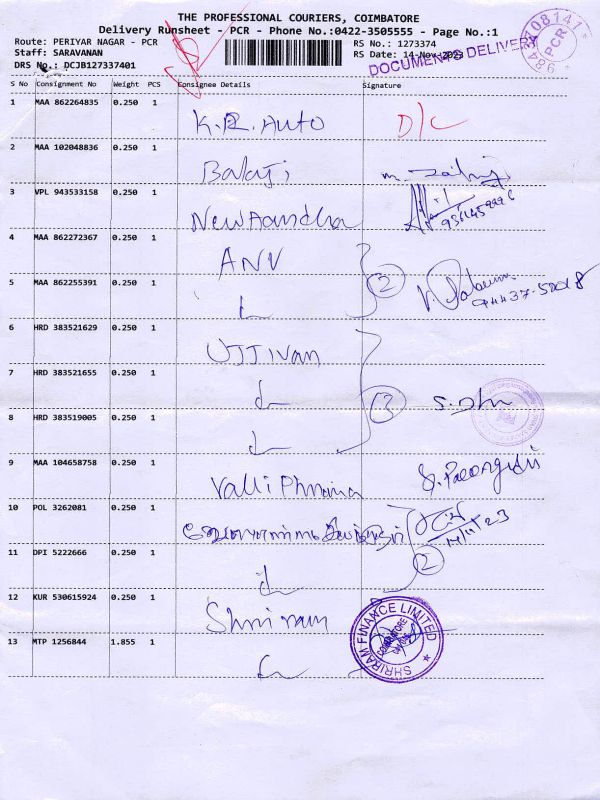 THE PROFESSIONAL COURIERS, COIMBATORE
Delivery Runsheet - PCR - Phone No.:0422-3505555 - Page No.:1
Route: PERIYAR NAGAR - PCR RS No.: 1273374
Staff: SARAVANAN RS Date: 14-Nov-2023
DRS No.: DCJB127337401
DOCUMENTS DELIVERY
PCR
S No Consignment No Weight PCS Consignee Details Signature
1 MAA 862264835 0.250 1 K.R. Auto D/C
2 MAA 102048836 0.250 1 Balaji
3 VPL 943533158 0.250 1 New Aandha
4 MAA 862272367 0.250 1 ANV
5 MAA 862255391 0.250 1 2
6 HRD 383521629 0.250 1 UJJIVAN
7 HRD 383521655 0.250 1 3
8 HRD 383519005 0.250 1
9 MAA 104658758 0.250 1 Valli Pharma
10 POL 3262081 0.250 1 14/11/23
11 DPI 5222666 0.250 1 2
12 KUR 530615924 0.250 1 Shriram
13 MTP 1256844 1.855 1
SHRIRAM FINANCE LIMITED
COIMBATORE